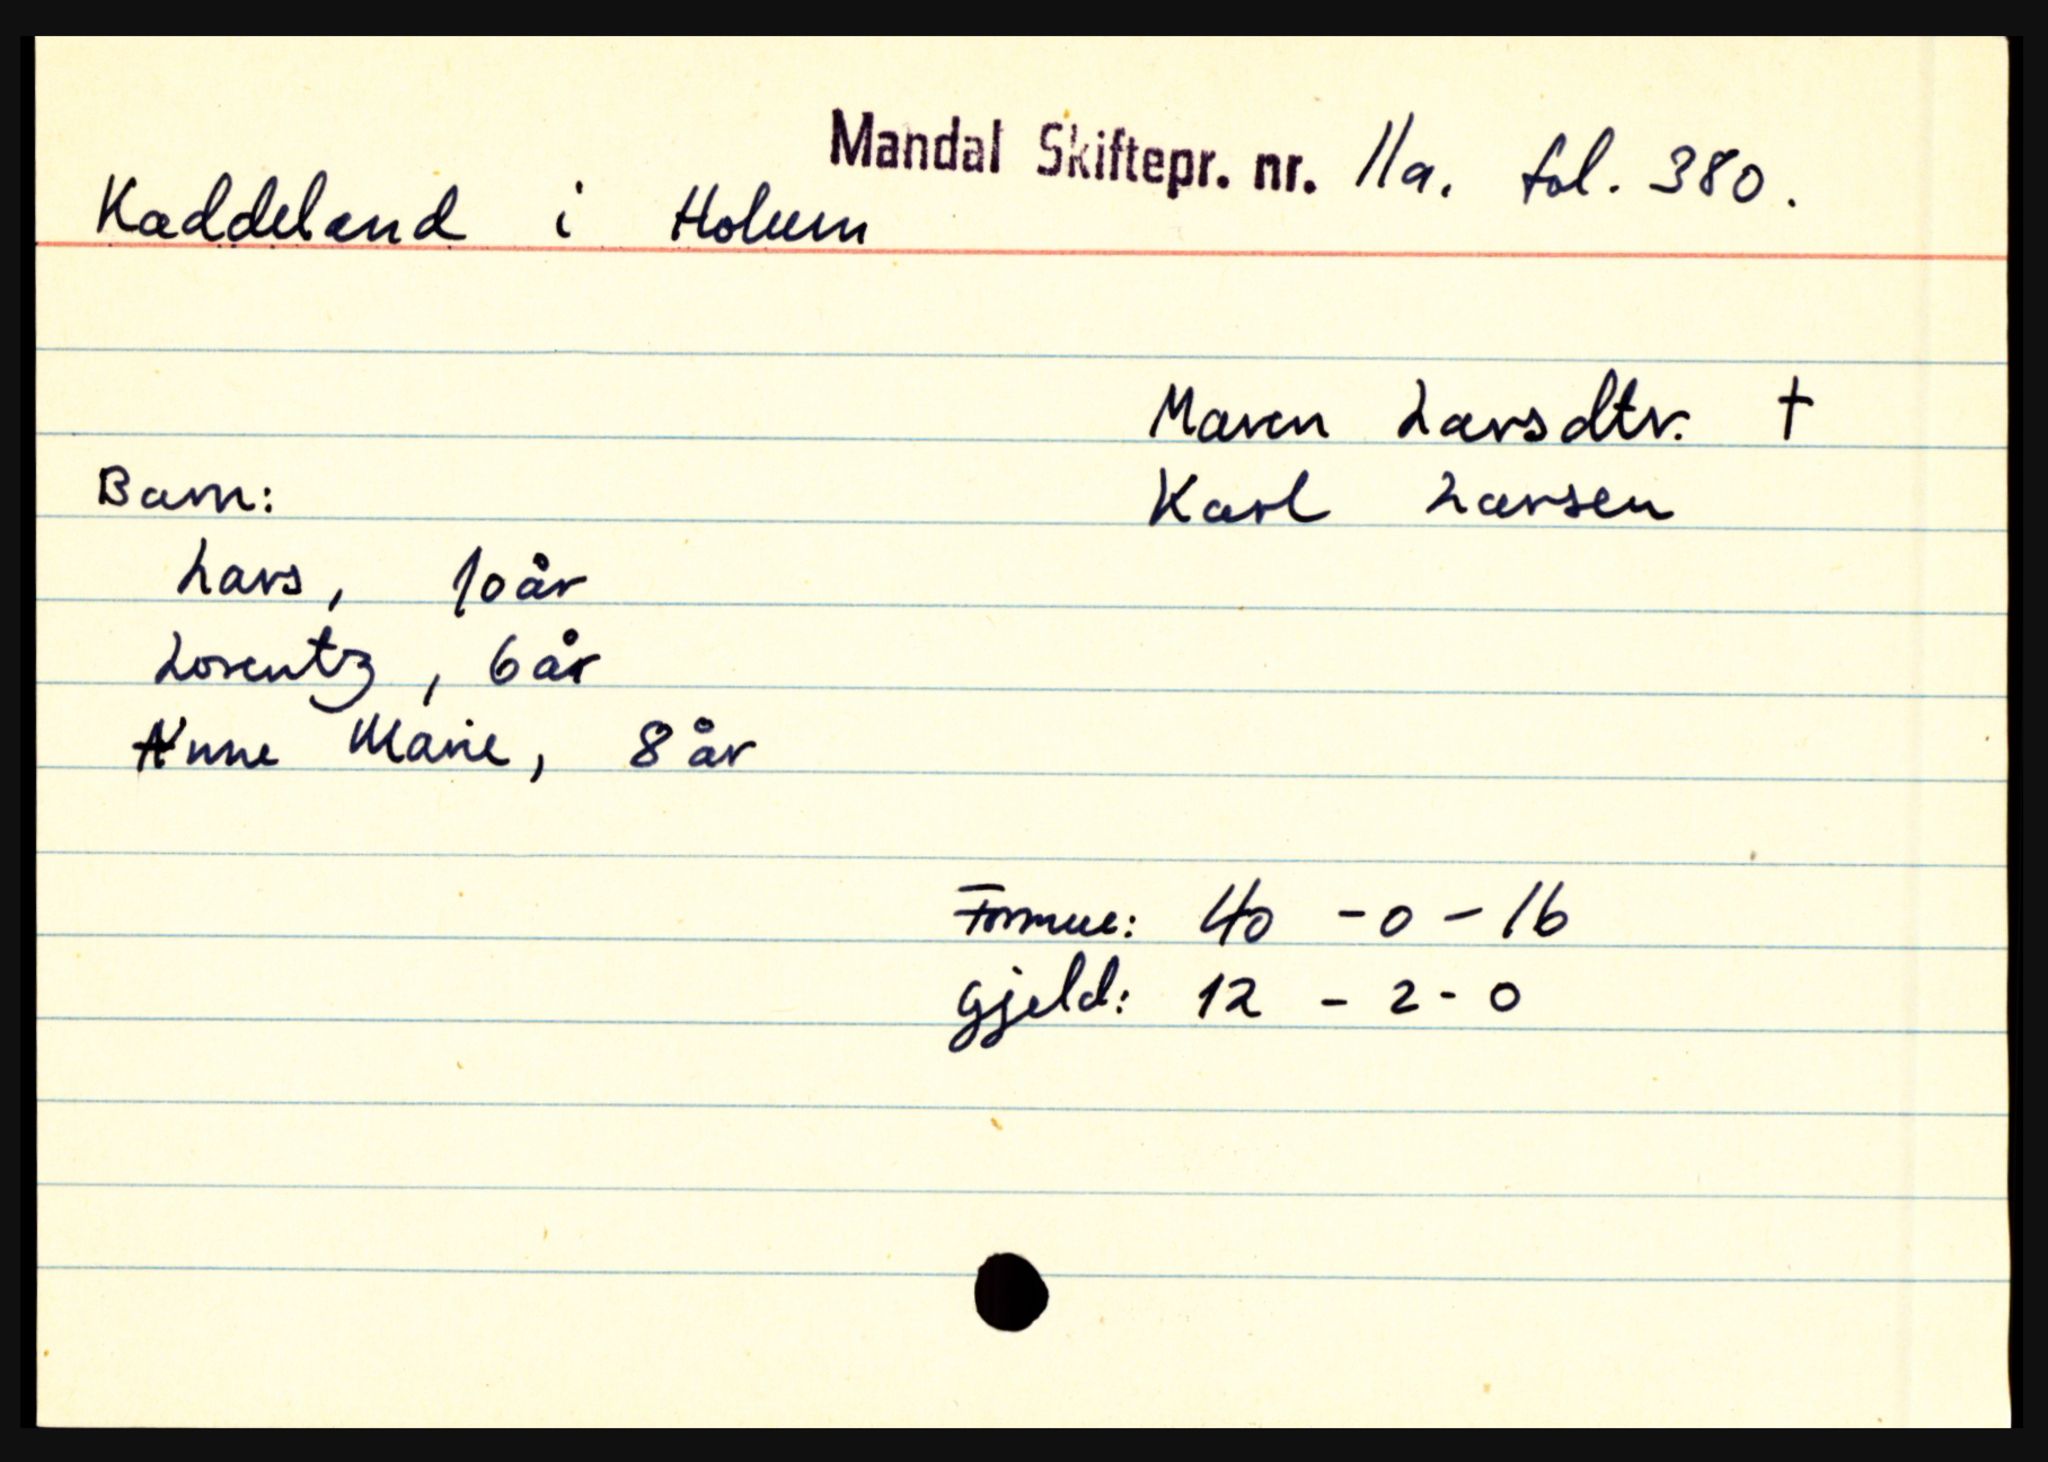 Mandal Skiftepr. nr. 11a. fol. 380.
Kaddeland i Holum
Maren Larsdtr. †
Barn:
Karl Larsen
Lars, 10 år
Lorentz, 6 år
Anne Marie, 8 år
Formue: 40 - 0 - 16
Gjeld: 12 - 2 - 0